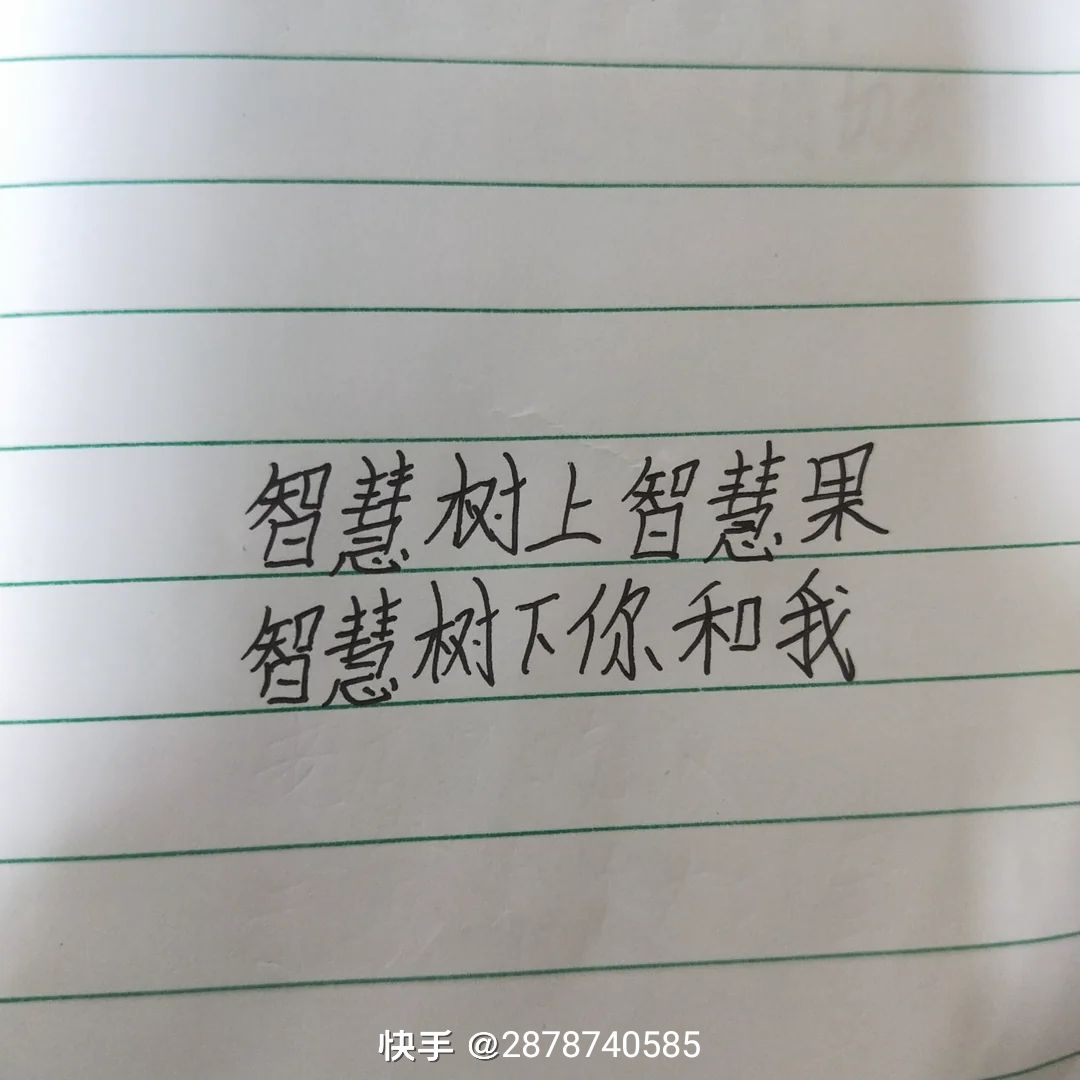 智慧树上智慧果
智慧树下你和我
快手 @2878740585